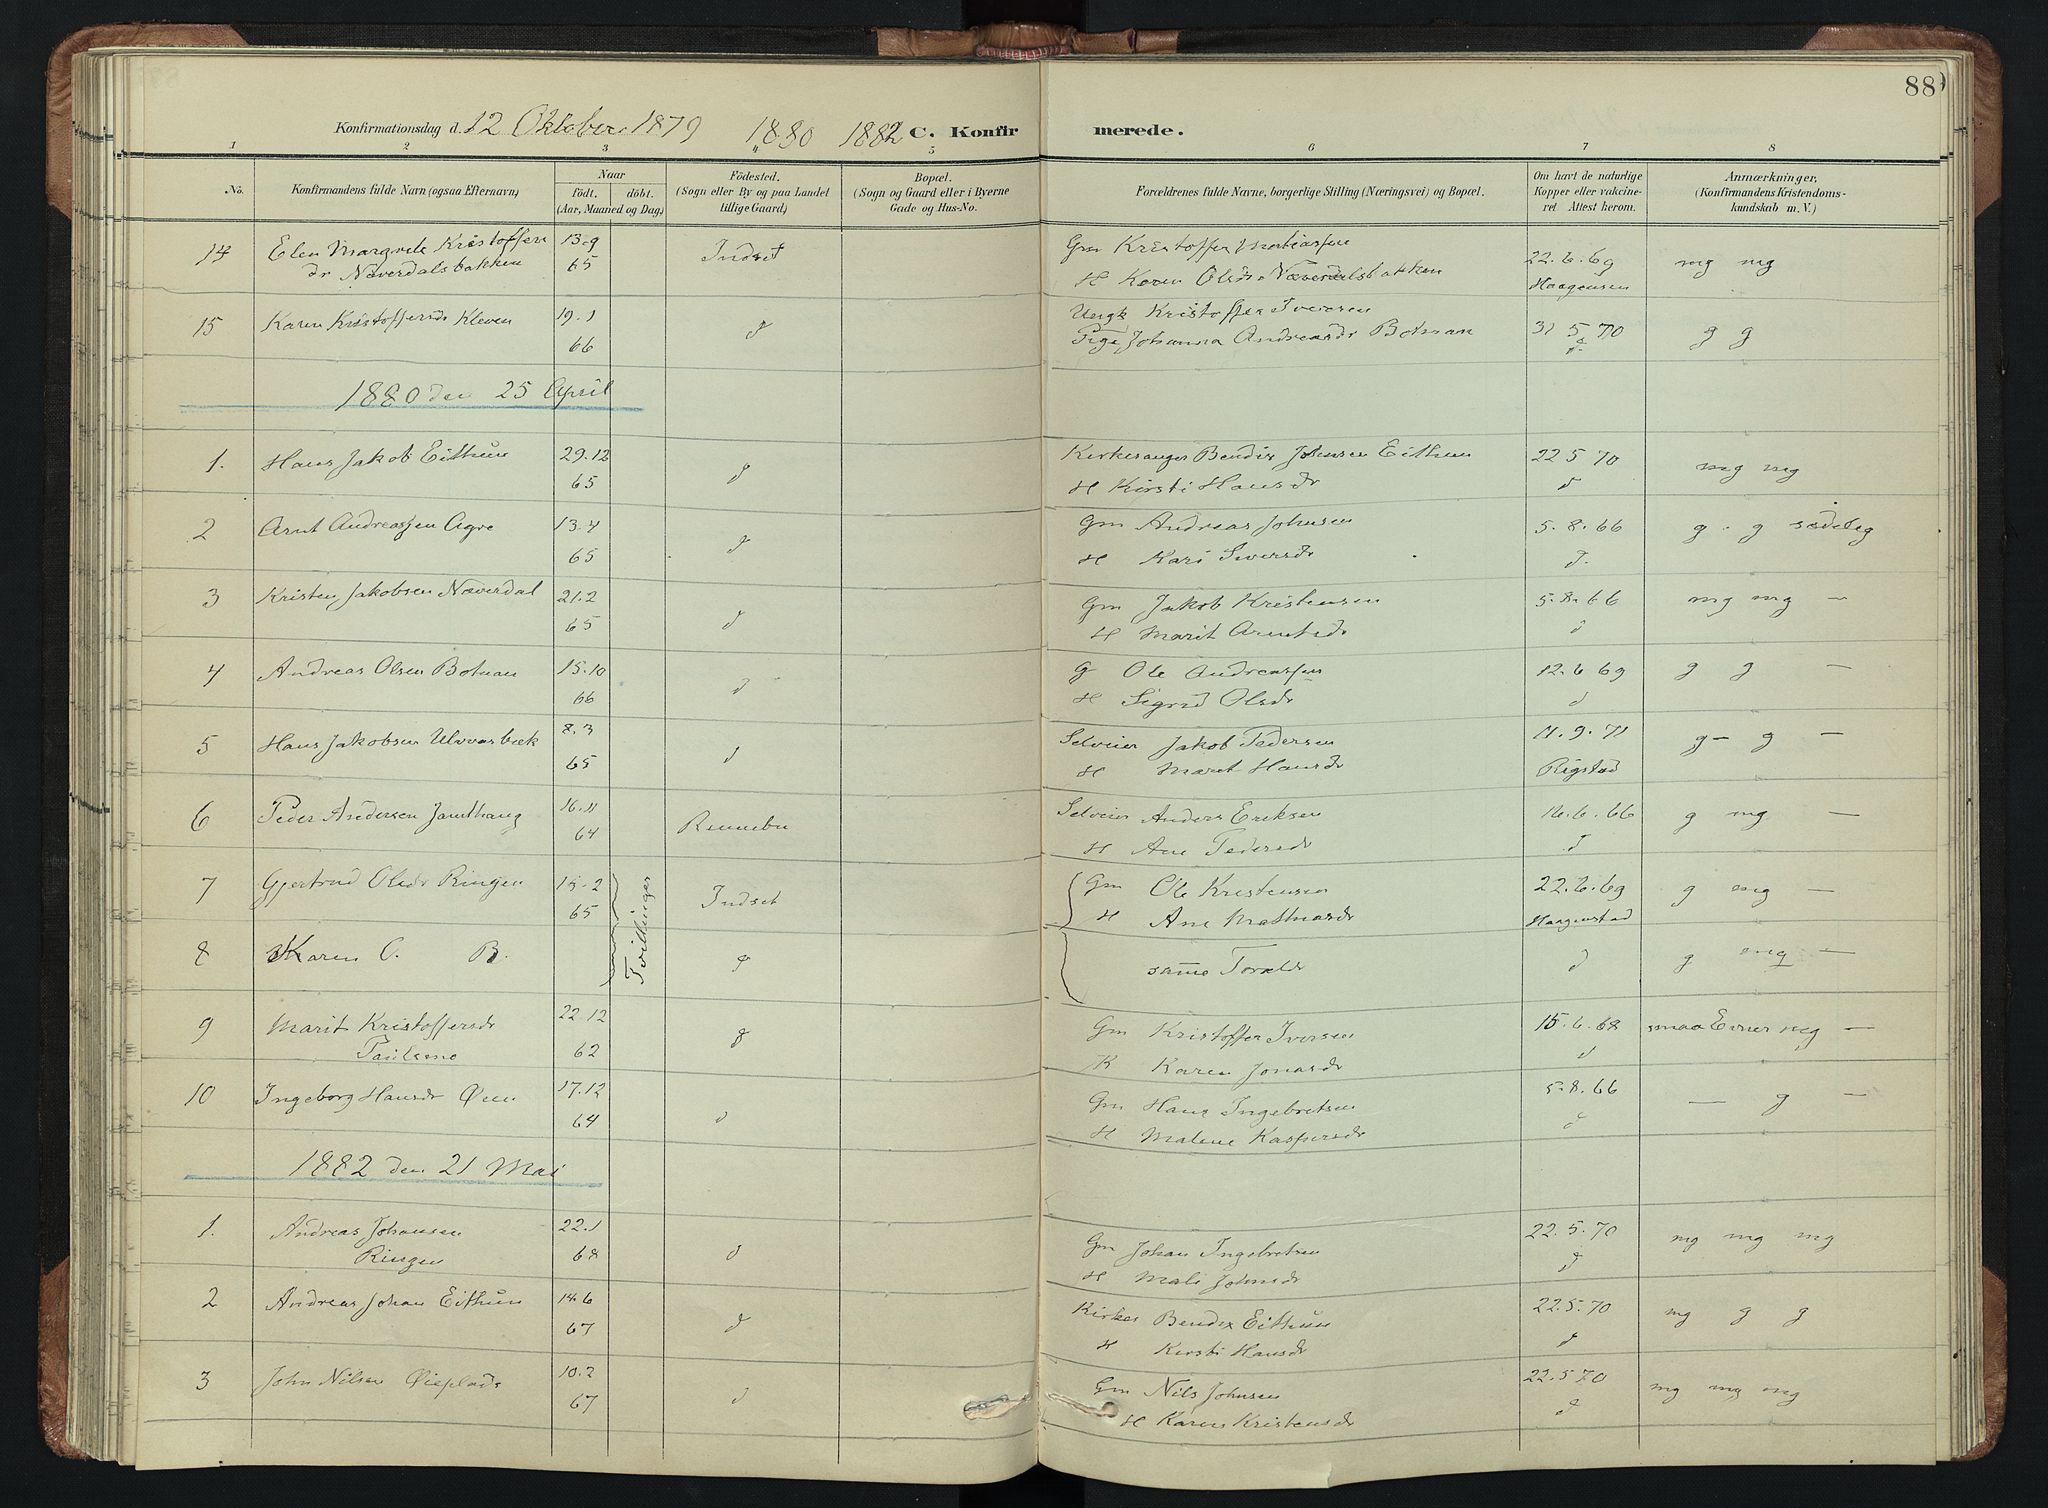 88
Konfirmationsdag d. 12 Oktober 1879 1880 1882 C. Konfirmerede.
1 2 3 4 5 6 7 8
No. Konfirmandens fulde Navn (ogsaa Efternavn) Naar født. døbt. (Aar, Maaned og Dag) Fødested. (Sogn eller By og paa Landet tillige Gaard) Bopæl. (Sogn og Gaard eller i Byerne Gade og Hus-No. Forældrenes fulde Navne, borgerlige Stilling (Næringsvei) og Bopæl. Om havt de naturlige Kopper eller vakcineret Attest herom. Anmærkninger, (Konfirmandens Kristendomskundskab m. V.)
14 Elen Margrete Kristoffer 13-9 Indset Gm Kristoffer Mathiassen 22.6.69 mg mg
dr Næverdalsbakken 65 H Karen Olsdr Næverdalsbakken Haagensen
15 Karen Kristoffersdr Kleven 19.1 d Ungk Kristoffer Iversen 31 5 70 g g
66 Pige Johanna Andreasdr Botnan
1880 den 25 April
1. Hans Jakob Eithun 29.12 d Kirkesanger Bendix Johnsen Eithun 22 5 70 mg mg
65 H Kirsti Hansdr d
2 Arnt Andreassen Agre 13.4 d Gm Andreas Johnsen 5.8.66 g - g
65 H Kari Iversdr d.
3 Kristen Jakobsen Næverdal 21.2 d Gm Jakob Kristensen 5.8.66 mg mg —
65 H Marit Arentsdr d
4 Andreas Olsen Botnan 15.10 d G Ole Andreassen 12.6 69 g g —
66 H Sigrid Olsdr d
5 Hans Jakobsen Ulvvasbæk 8.3 d Selveier Jakob Pedersen 11.9.71 g — g —
65 H Marit Hansdr Rigstad
6 Peder Andersen Jamthaug 16.11 Rennebu Selveier Anders Eriksen 16.6.66 g mg —
64 H Ane Pedersdr d
7 Gjertrud Olsdr Ringen 15.2 Tvillinger Indset Gm Ole Kristensen 22.6.69 g mg —
65 H Ane Mathiasdr Haagenstad
8 Karen O. R. d samme Foreldr d g mg —
9 Marit Kristoffersdr 22.12 d Gm Kristoffer Iversen 15.6.68 smaa Evner mg —
Paulsmo 62 K Karen Jonasdr d
10 Ingeborg Hansdr Øien 17.12 d Gm Hans Ingebretsen 5.8.66 — g —
64 H Malene Kaspersdr d
1882 den 21 Mai
1. Andreas Johansen 22.1 d Gm Johan Ingebretsen 22.5.70 mg mg mg
Ringen 68 H Mali Johnsdr d
2 Andreas Johan Eithun 14.6 d Kirkes Bendix Eithun 22.5.70 mg g g
67 H Kirsti Hansdr d
3 John Nilsen Øieplads 10.2 d Gm Nils Johnsen 22.5 70 mg mg mg
67 H Karen Kristensdr d